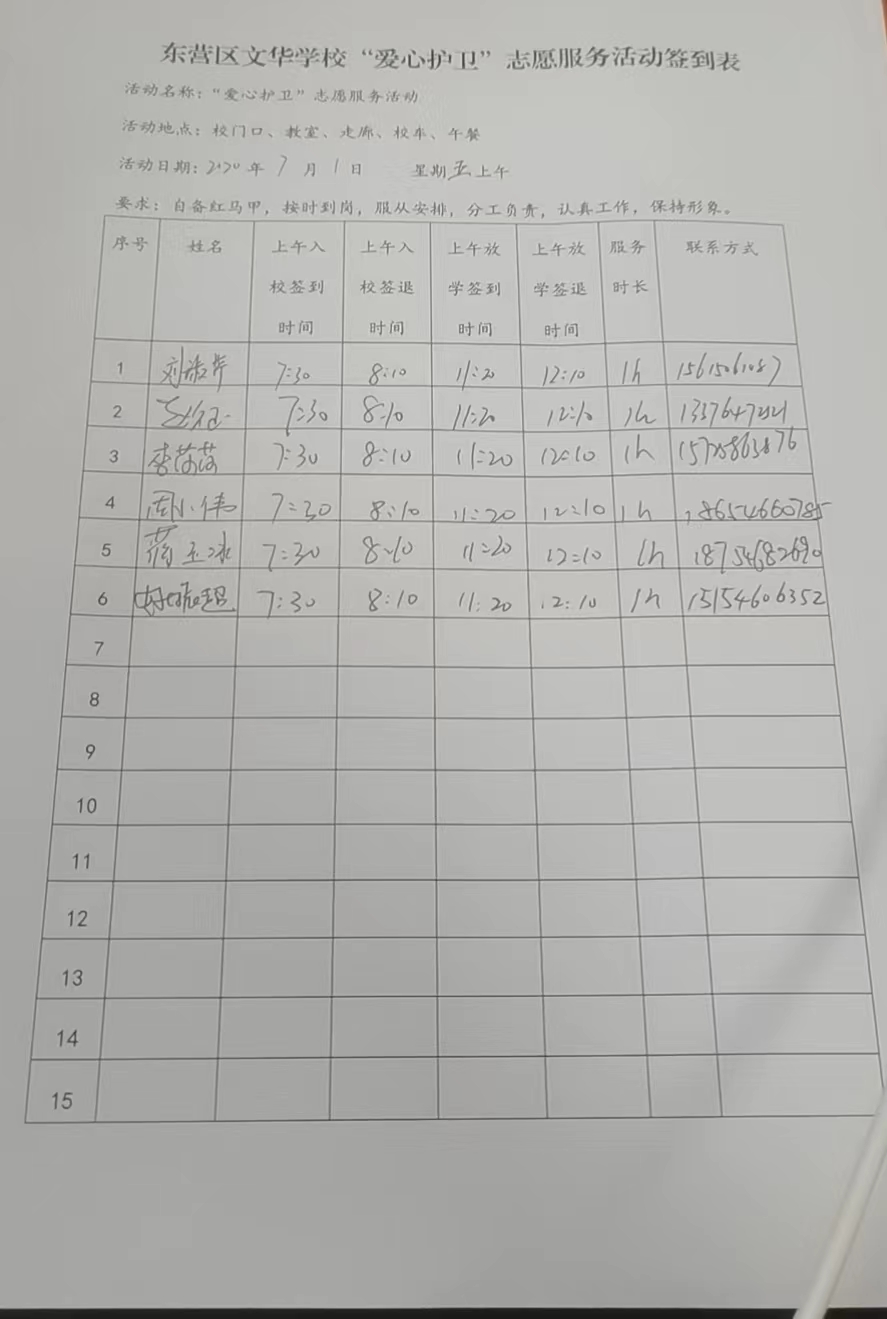 东营区文华学校“爱心护卫”志愿服务活动签到表
活动名称：“爱心护卫”志愿服务活动
活动地点：校门口、教室、走廊、校车、午餐
活动日期：2020年7月1日 星期五上午
要求：自备红马甲，按时到岗，服从安排，分工负责，认真工作，保持形象。
序号 姓名 上午入校签到时间 上午入校签退时间 上午放学签到时间 上午放学签退时间 服务时长 联系方式
1 7:30 8:10 11:20 12:10 1h 15615061087
2 7:30 8:10 11:20 12:10 1h
3 李蓉蓉 7:30 8:10 11:20 12:10 1h
4 周小伟 7:30 8:10 11:20 12:10 1h 18654660785
5 蒋玉冰 7:30 8:10 11:20 12:10 1h 18754682690
6 7:30 8:10 11:20 12:10 1h 15154606352
7
8
9
10
11
12
13
14
15